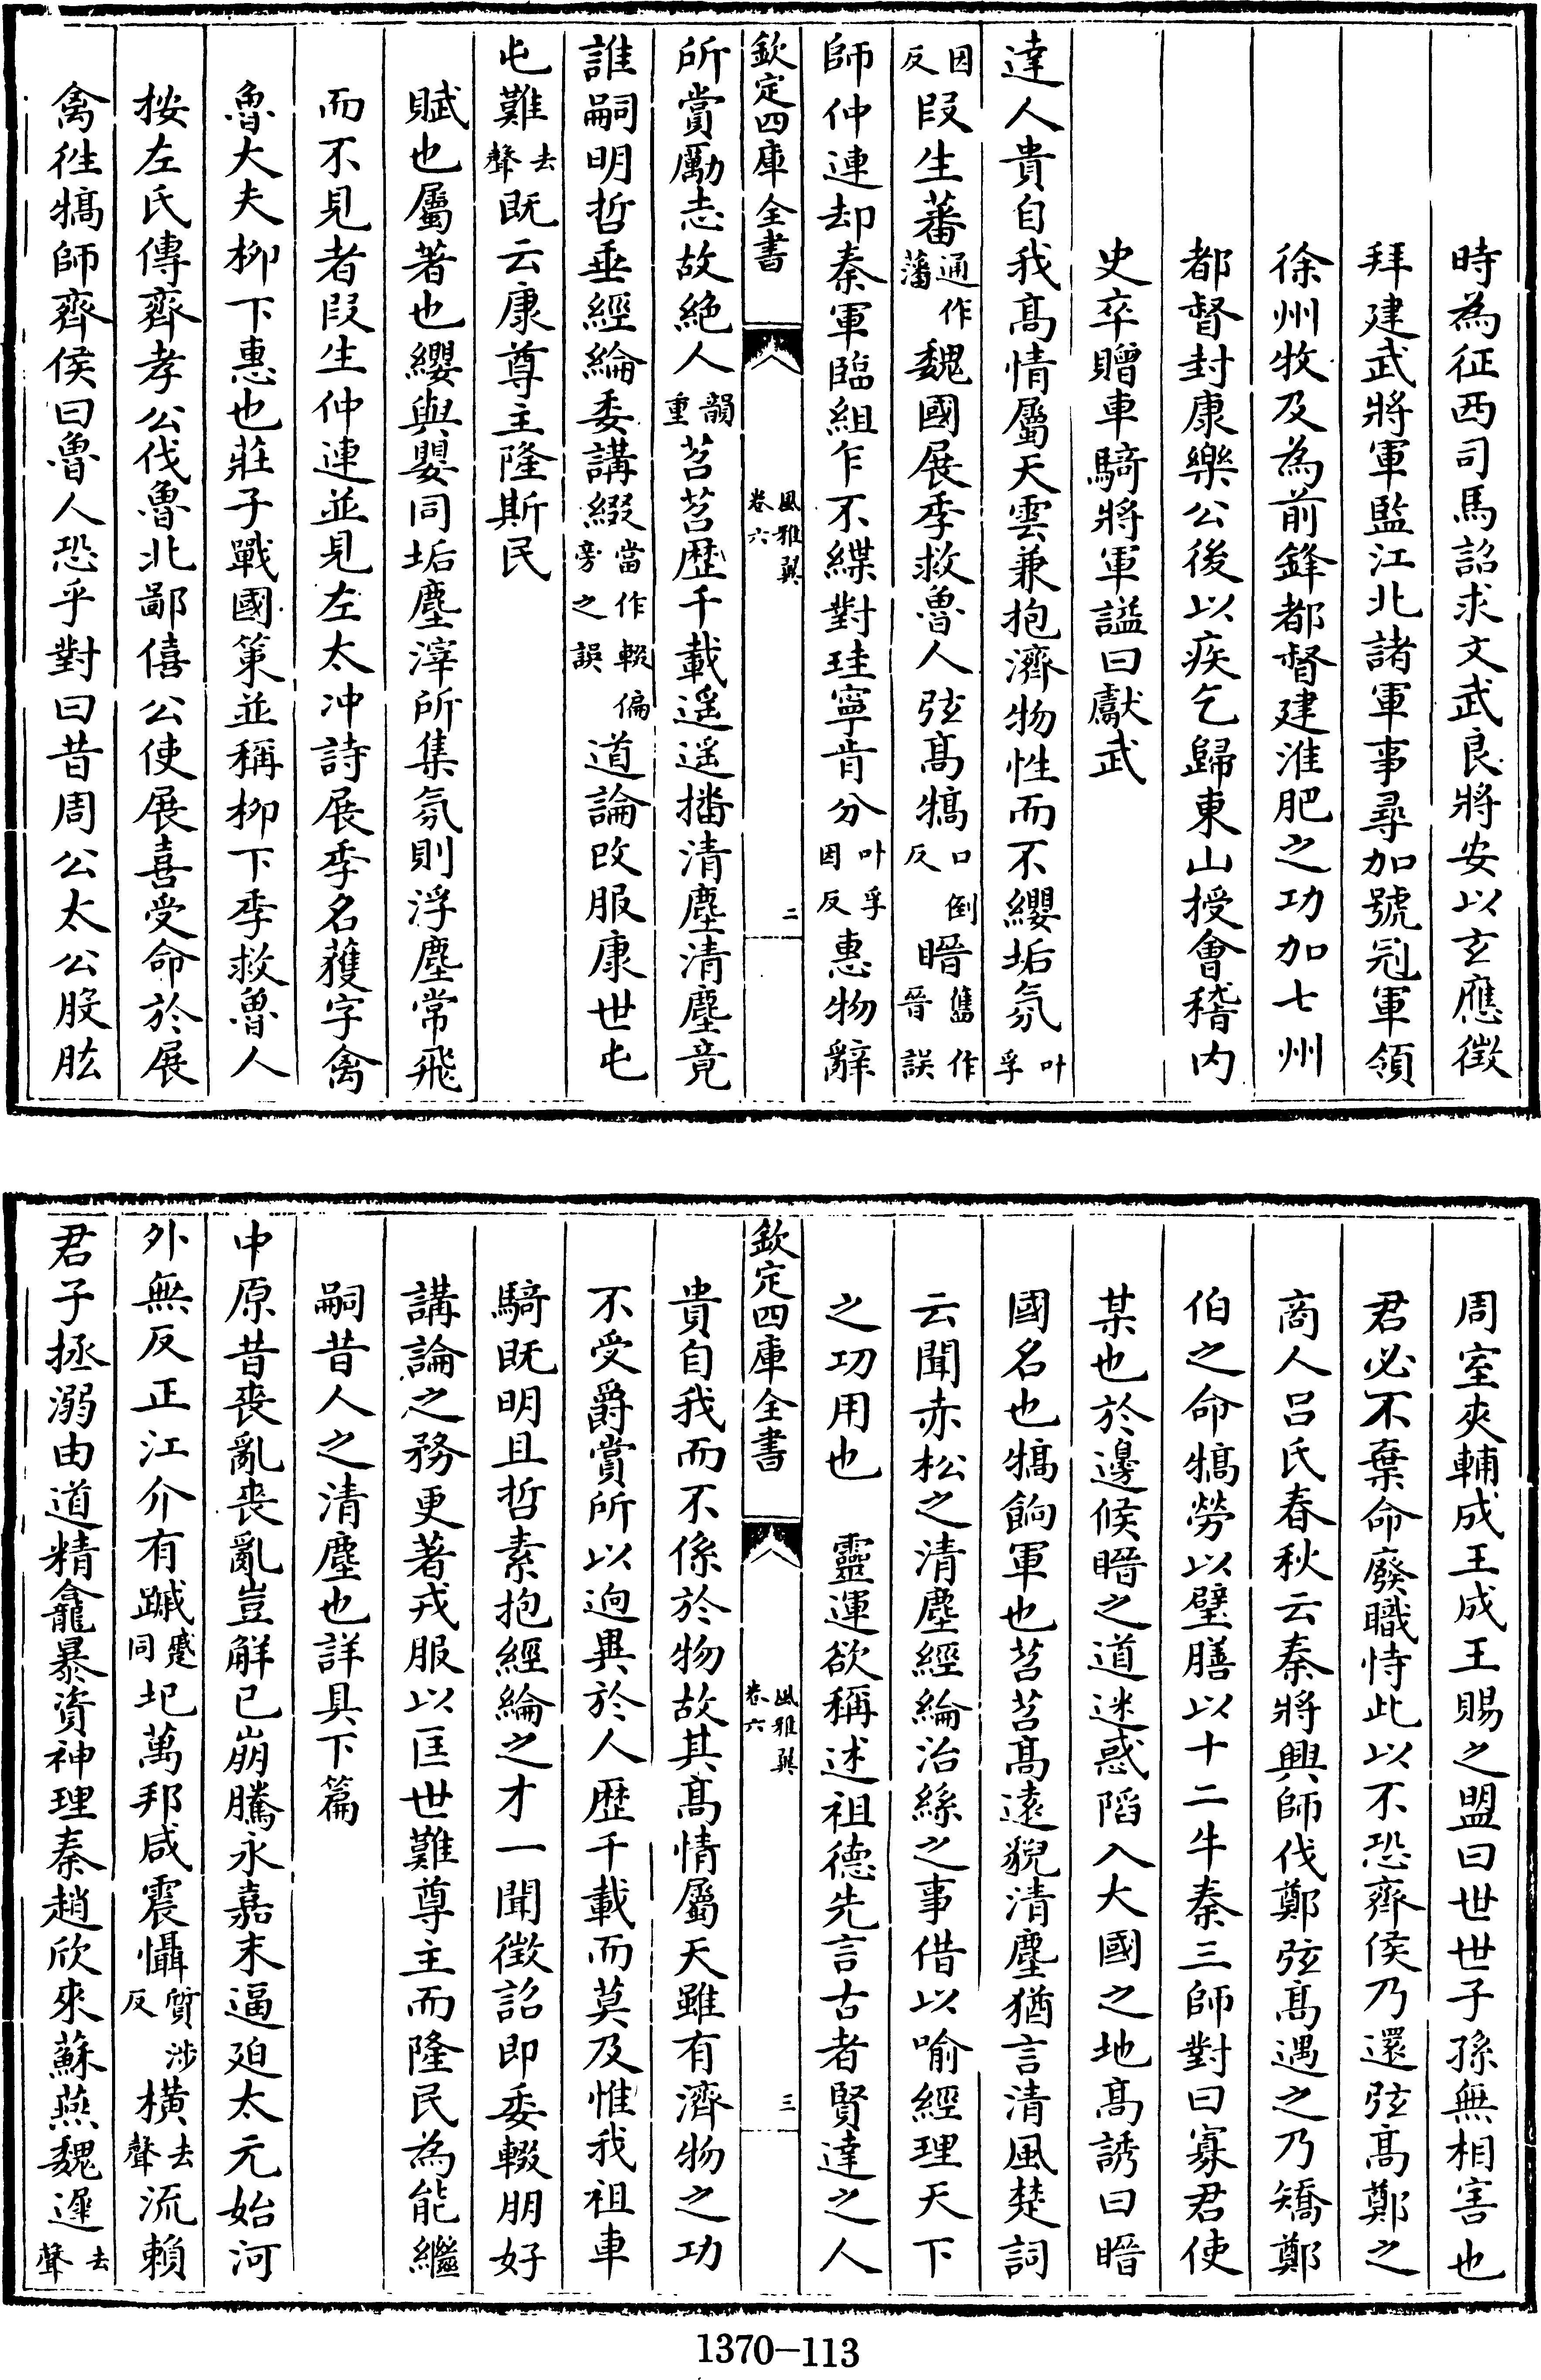 時為征西司馬詔求文武良將安以玄應徵
拜建武將軍監江北諸軍事尋加號冠軍領
徐州牧及為前鋒都督建淮肥之功加七州
都督封康樂公後以疾乞歸東山授會稽内
史卒贈車騎將軍謚曰獻武
達人貴自我高情屬天雲兼抱濟物性而不纓垢氛叶孚
因反段生蕃通作藩魏國展季救魯人弦高犒口倒反㬢舊作晉誤
師仲連却秦軍臨組乍不緤對珪寧肯分叶孚因反惠物辭
欽定四庫全書
風雅翼
卷六
二
所賞勵志故絶人韻重苕苕歴千載遥遥播清塵清塵竟
誰嗣明哲垂經綸委講綴當作輟偏旁之誤道論改服康世屯
屯難去聲既云康尊主隆斯民
賦也屬著也纓與嬰同垢塵滓所集氛則浮塵常飛
而不見者段生仲連並見左太冲詩展季名獲字禽
魯大夫柳下惠也莊子戰國策並稱柳下季救魯人
按左氏傳齊孝公伐魯北鄙僖公使展喜受命於展
禽徃犒師齊侯曰魯人恐乎對曰昔周公太公股肱
周室夾輔成王成王賜之盟曰世世子孫無相害也
君必不棄命廢職恃此以不恐齊侯乃還弦高鄭之
商人吕氏春秋云秦將興師伐鄭弦高遇之乃矯鄭
伯之命犒勞以璧膳以十二牛秦三師對曰寡君使
某也於邊候㬢之道迷惑陷入大國之地高誘曰㬢
國名也犒餉軍也苕苕高遠貌清塵猶言清風楚詞
云聞赤松之清塵經綸治絲之事借以喻經理天下
之功用也　靈運欲稱述祖德先言古者賢達之人
欽定四庫全書
風雅翼
卷六
三
貴自我而不係於物故其高情屬天雖有濟物之功
不受爵賞所以逈異於人歴千載而莫及惟我祖車
騎既明且哲素抱經綸之才一聞徵詔即委輟朋好
講論之務更著戎服以匡世難尊主而隆民為能繼
嗣昔人之清塵也詳具下篇
中原昔喪亂喪亂豈解已崩騰永嘉末逼廹太元始河
外無反正江介有䠞蹙同圮萬邦咸震懾質涉反橫去聲流賴
君子拯溺由道精龕暴資神理秦趙欣來蘇燕魏遲去聲
1370-113